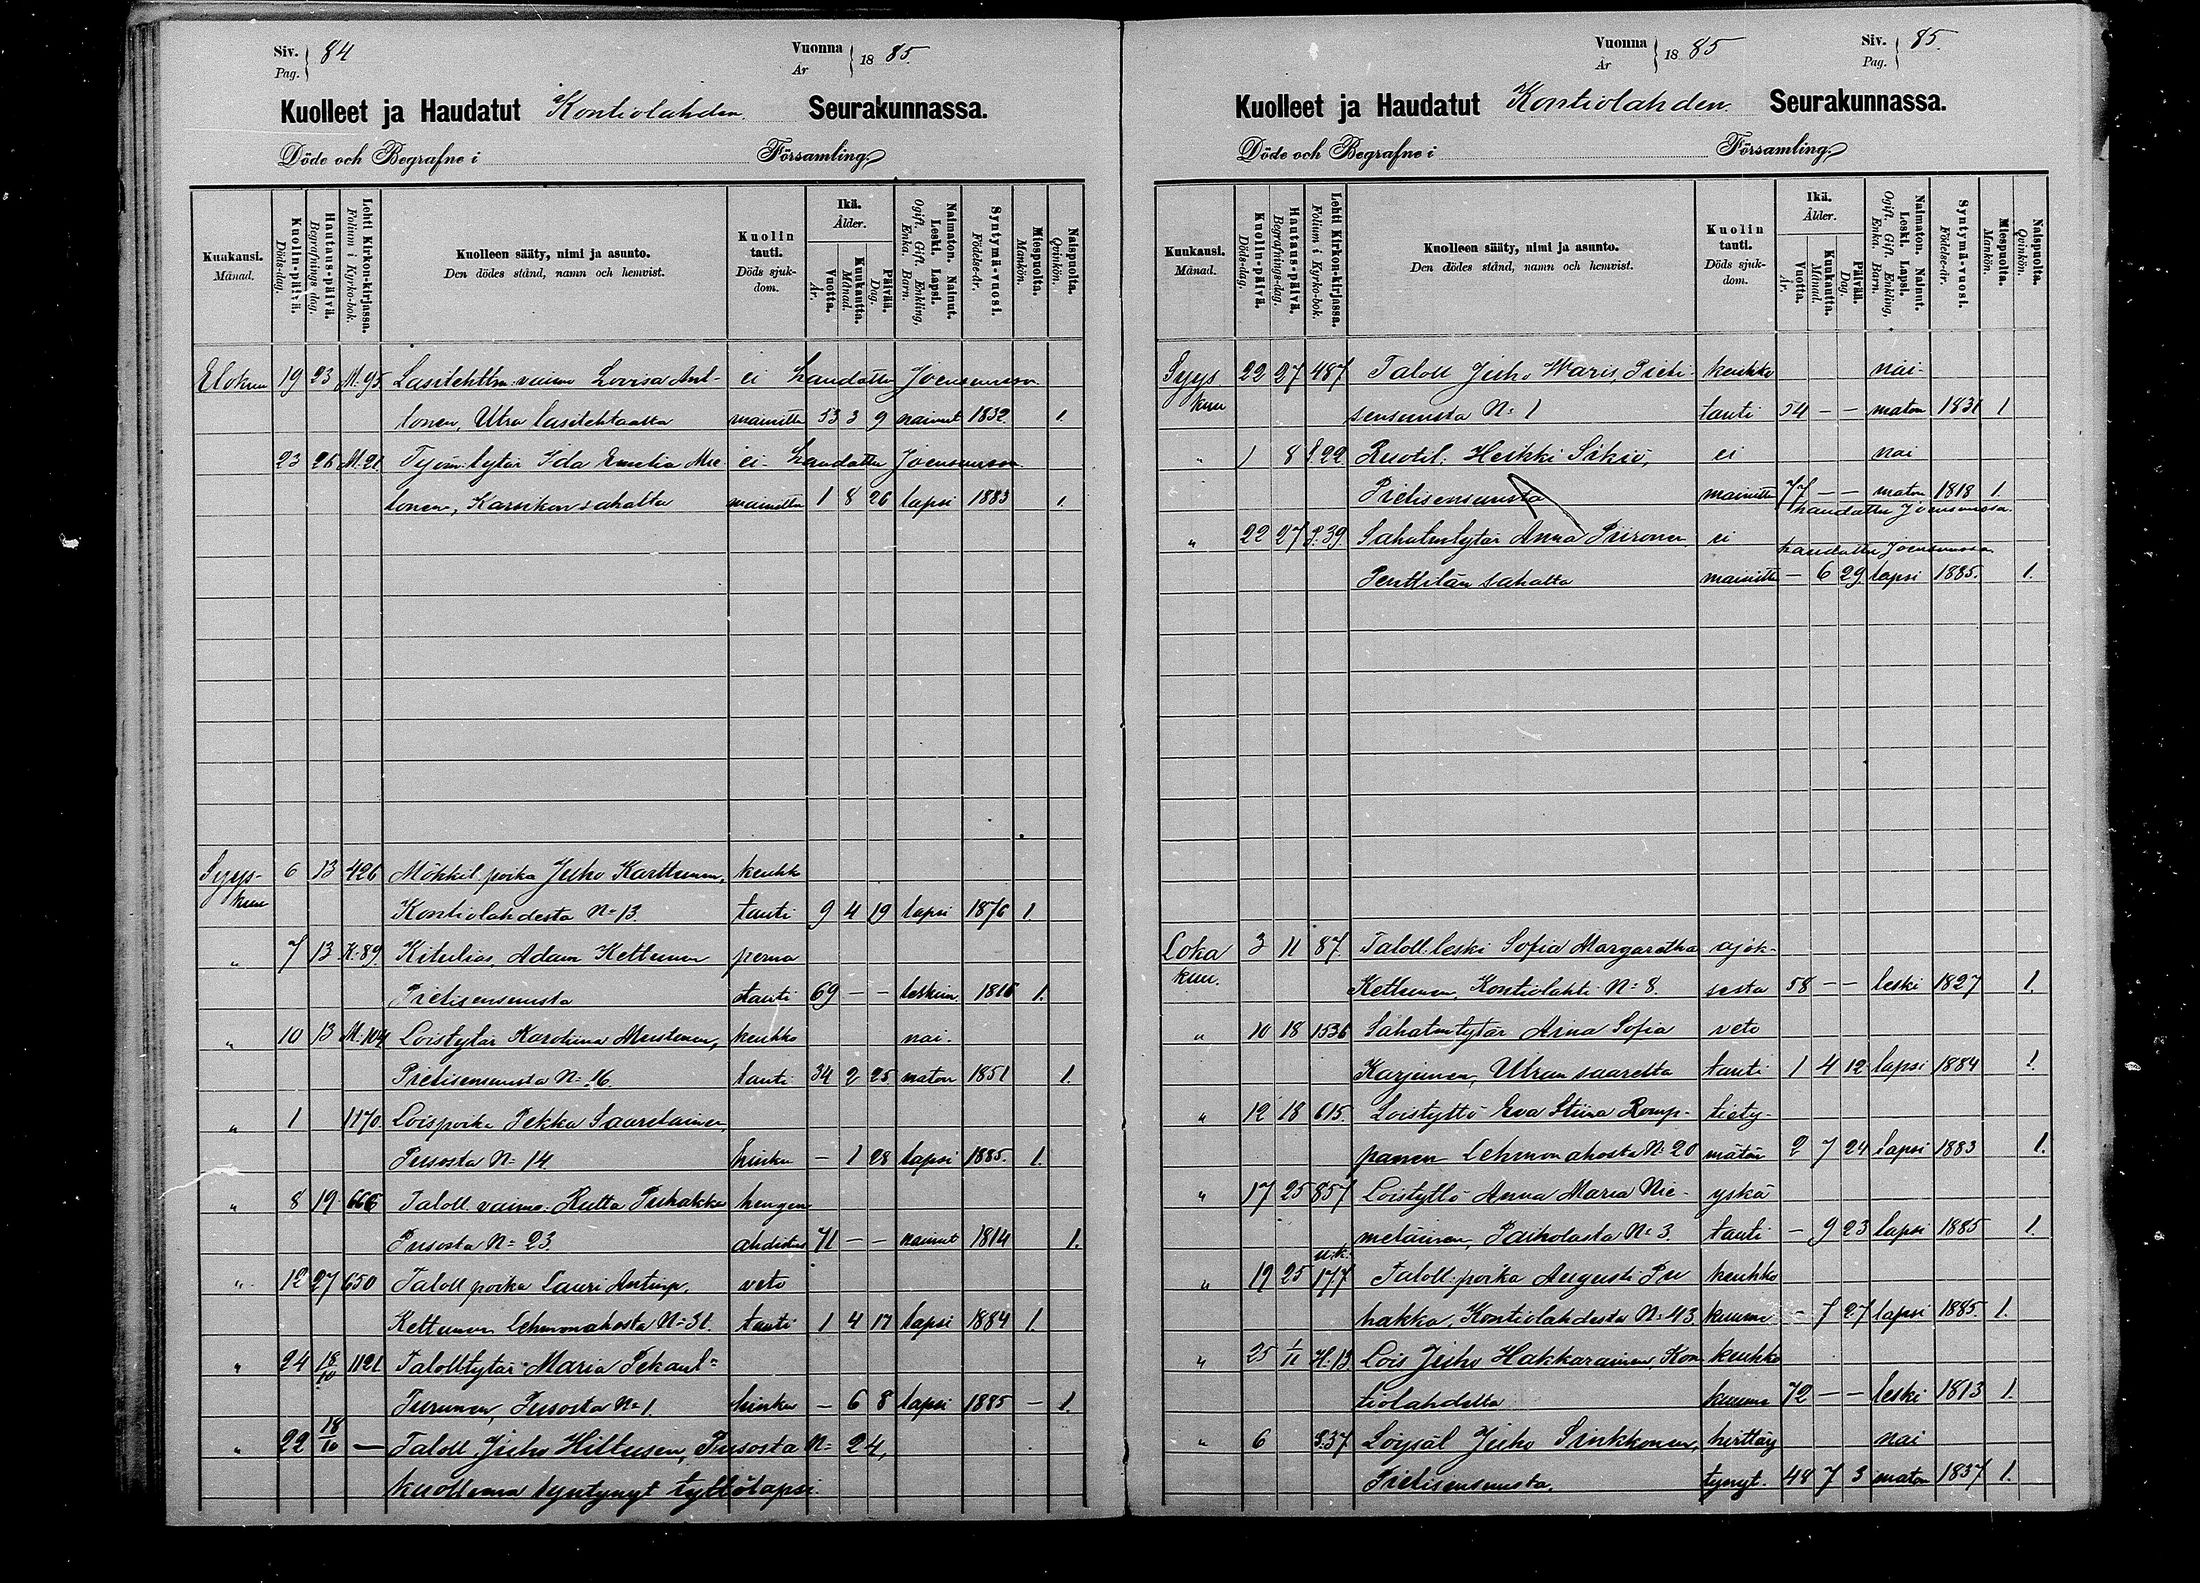 Siv. Pag. 84
Vuonna År 1885.
Kuolleet ja Haudatut Kontiolahden Seurakunnassa.
Döde och Begrafne i Församling.
Kuukausi. Månad.
Kuolin-päivä. Döds-dag.
Hautaus-päivä. Begrafnings dag.
Lehti Kirkon-kirjassa. Folium i Kyrko-bok.
Kuolleen sääty, nimi ja asunto. Den dödes stånd, namn och hemvist.
Kuolin tauti. Döds sjuk-dom.
Ikä. Ålder.
Vuotta. År.
Kuukautta. Månad.
Päivää. Dag.
Naimaton. Nainut. Leski. Lapsi. Ogift. Gift. Enkling, Enka. Barn.
Syntymä-vuosi. Födelse-år.
Miespuolta. Mankön.
Naispuolta. Qvinkön.
Elokuu 19 23 M.95 Lasitehtm. vaimo Lovisa Ant- ei haudattu Joensuussa
tonen, Utra lasitehtaalta mainittu 53 3 9 nainut 1832. 1.
23 26 M.21 Työm. tytär Ida Emelia Mie- ei haudattu Joensuussa
tonen, Karsikon sahalta mainittu 1 8 26 lapsi 1883 1.
Syys- 6 13 426 Mökkil. poika Juho Karttunen, keuhko
kuu Kontiolahdesta No 13. tauti 9 4 19 lapsi 1876 1.
" 7 13 K.89. Kitulias Adam Kettunen perna
Pielisensuusta tauti 69 — — leskim. 1816 1.
" 10 13 M.104 Loistytär Karolina Mustonen, keuhko nai-
Pielisensuusta No 16. tauti 34 2 25 maton 1851 1.
" 1 1170. Loispoika Pekka Saarelainen,
Pusosta No 14. hinku — 1 28 lapsi 1885. 1.
" 8 19 666 Taloll. vaimo Rutta Puhakka hengen
Pusosta No 23. ahdistus 71 — — nainut 1814 1.
" 12 27 650 Taloll. poika Lauri Antinp. veto
Kettunen Lehmonahosta No 31. tauti 1 4 17 lapsi 1884 1.
" 24 18/10 1121 Talolltytär Maria Pekant=
Turunen, Pusosta No 1. hinku — 6 8 lapsi 1885 — 1.
" 22 18/10 — Taloll. Juho Hiltusen, Pusosta No 24,
kuollema syntynyt tyttölapsi.
Vuonna År 1885
Siv. Pag. 85.
Kuolleet ja Haudatut Kontiolahden Seurakunnassa.
Döde och Begrafne i Församling.
Kuukausi. Månad.
Kuolin-päivä. Döds-dag.
Hautaus-päivä. Begrafnings-dag.
Lehti Kirkon-kirjassa. Folium i Kyrko-bok.
Kuolleen sääty, nimi ja asunto. Den dödes stånd, namn och hemvist.
Kuolin tauti. Döds sjuk-dom.
Ikä. Ålder.
Vuotta. År.
Kuukautta. Månad.
Päivää. Dag.
Naimaton. Nainut. Leski. Lapsi. Ogift. Gift. Enkling, Enka. Barn.
Syntymä-vuosi. Födelse-år.
Miespuolta. Mankön.
Naispuolta. Qvinkön.
Syys 22 27 487 Taloll Juho Waris, Pieli- keuhko nai-
kuu sensuusta No 1 tauti 54 — — maton 1831 1
" 1 8 S.22. Ruotil. Heikki Sikiö, ei nai
Pielisensuusta mainittu 77 — — maton 1818 1.
haudattu Joensuussa.
" 22 27 P.39. Sahalmtytär Anna Piironen ei haudattu Joensuussa
Penttilän sahalta mainittu — 6 29 lapsi 1885. 1.
Loka 3 11 87. Taloll. leski Sofia Margaretha ajok-
kuu. Kettunen, Kontiolahti No 8. sesta 58 — — leski 1827 1.
" 10 18 1536 Sahalmtytär Aina Sofia veto
Karjunen, Utran saarelta tauti 1 4 12 lapsi 1884 1.
" 12 18 615. Loistyttö Eva Stiina Romp- tiety-
panen Lehmonahosta No 20 mätön 2 7 24 lapsi 1883 1.
" 17 25 857 Loistyttö Anna Maria Nie- yskä
metäinen, Paiholasta No 3. tauti — 9 23 lapsi 1885 1.
u.k.
" 19 25 177 Taloll. poika Augusti Pu keuhko
hakka, Kontiolahdesta No 43. kuume — 7 27 lapsi 1885. 1.
" 25 1/11 H.13 Lois Juho Hakkarainen, Kon keuhko
tiolahdelta kuume 72 — — leski 1813 1.
" 6 S.37 Löysäl Juho Sinkkonen, hirttäy nai
Pielisensuusta. tynyt. 48 7 3 maton 1837 1.